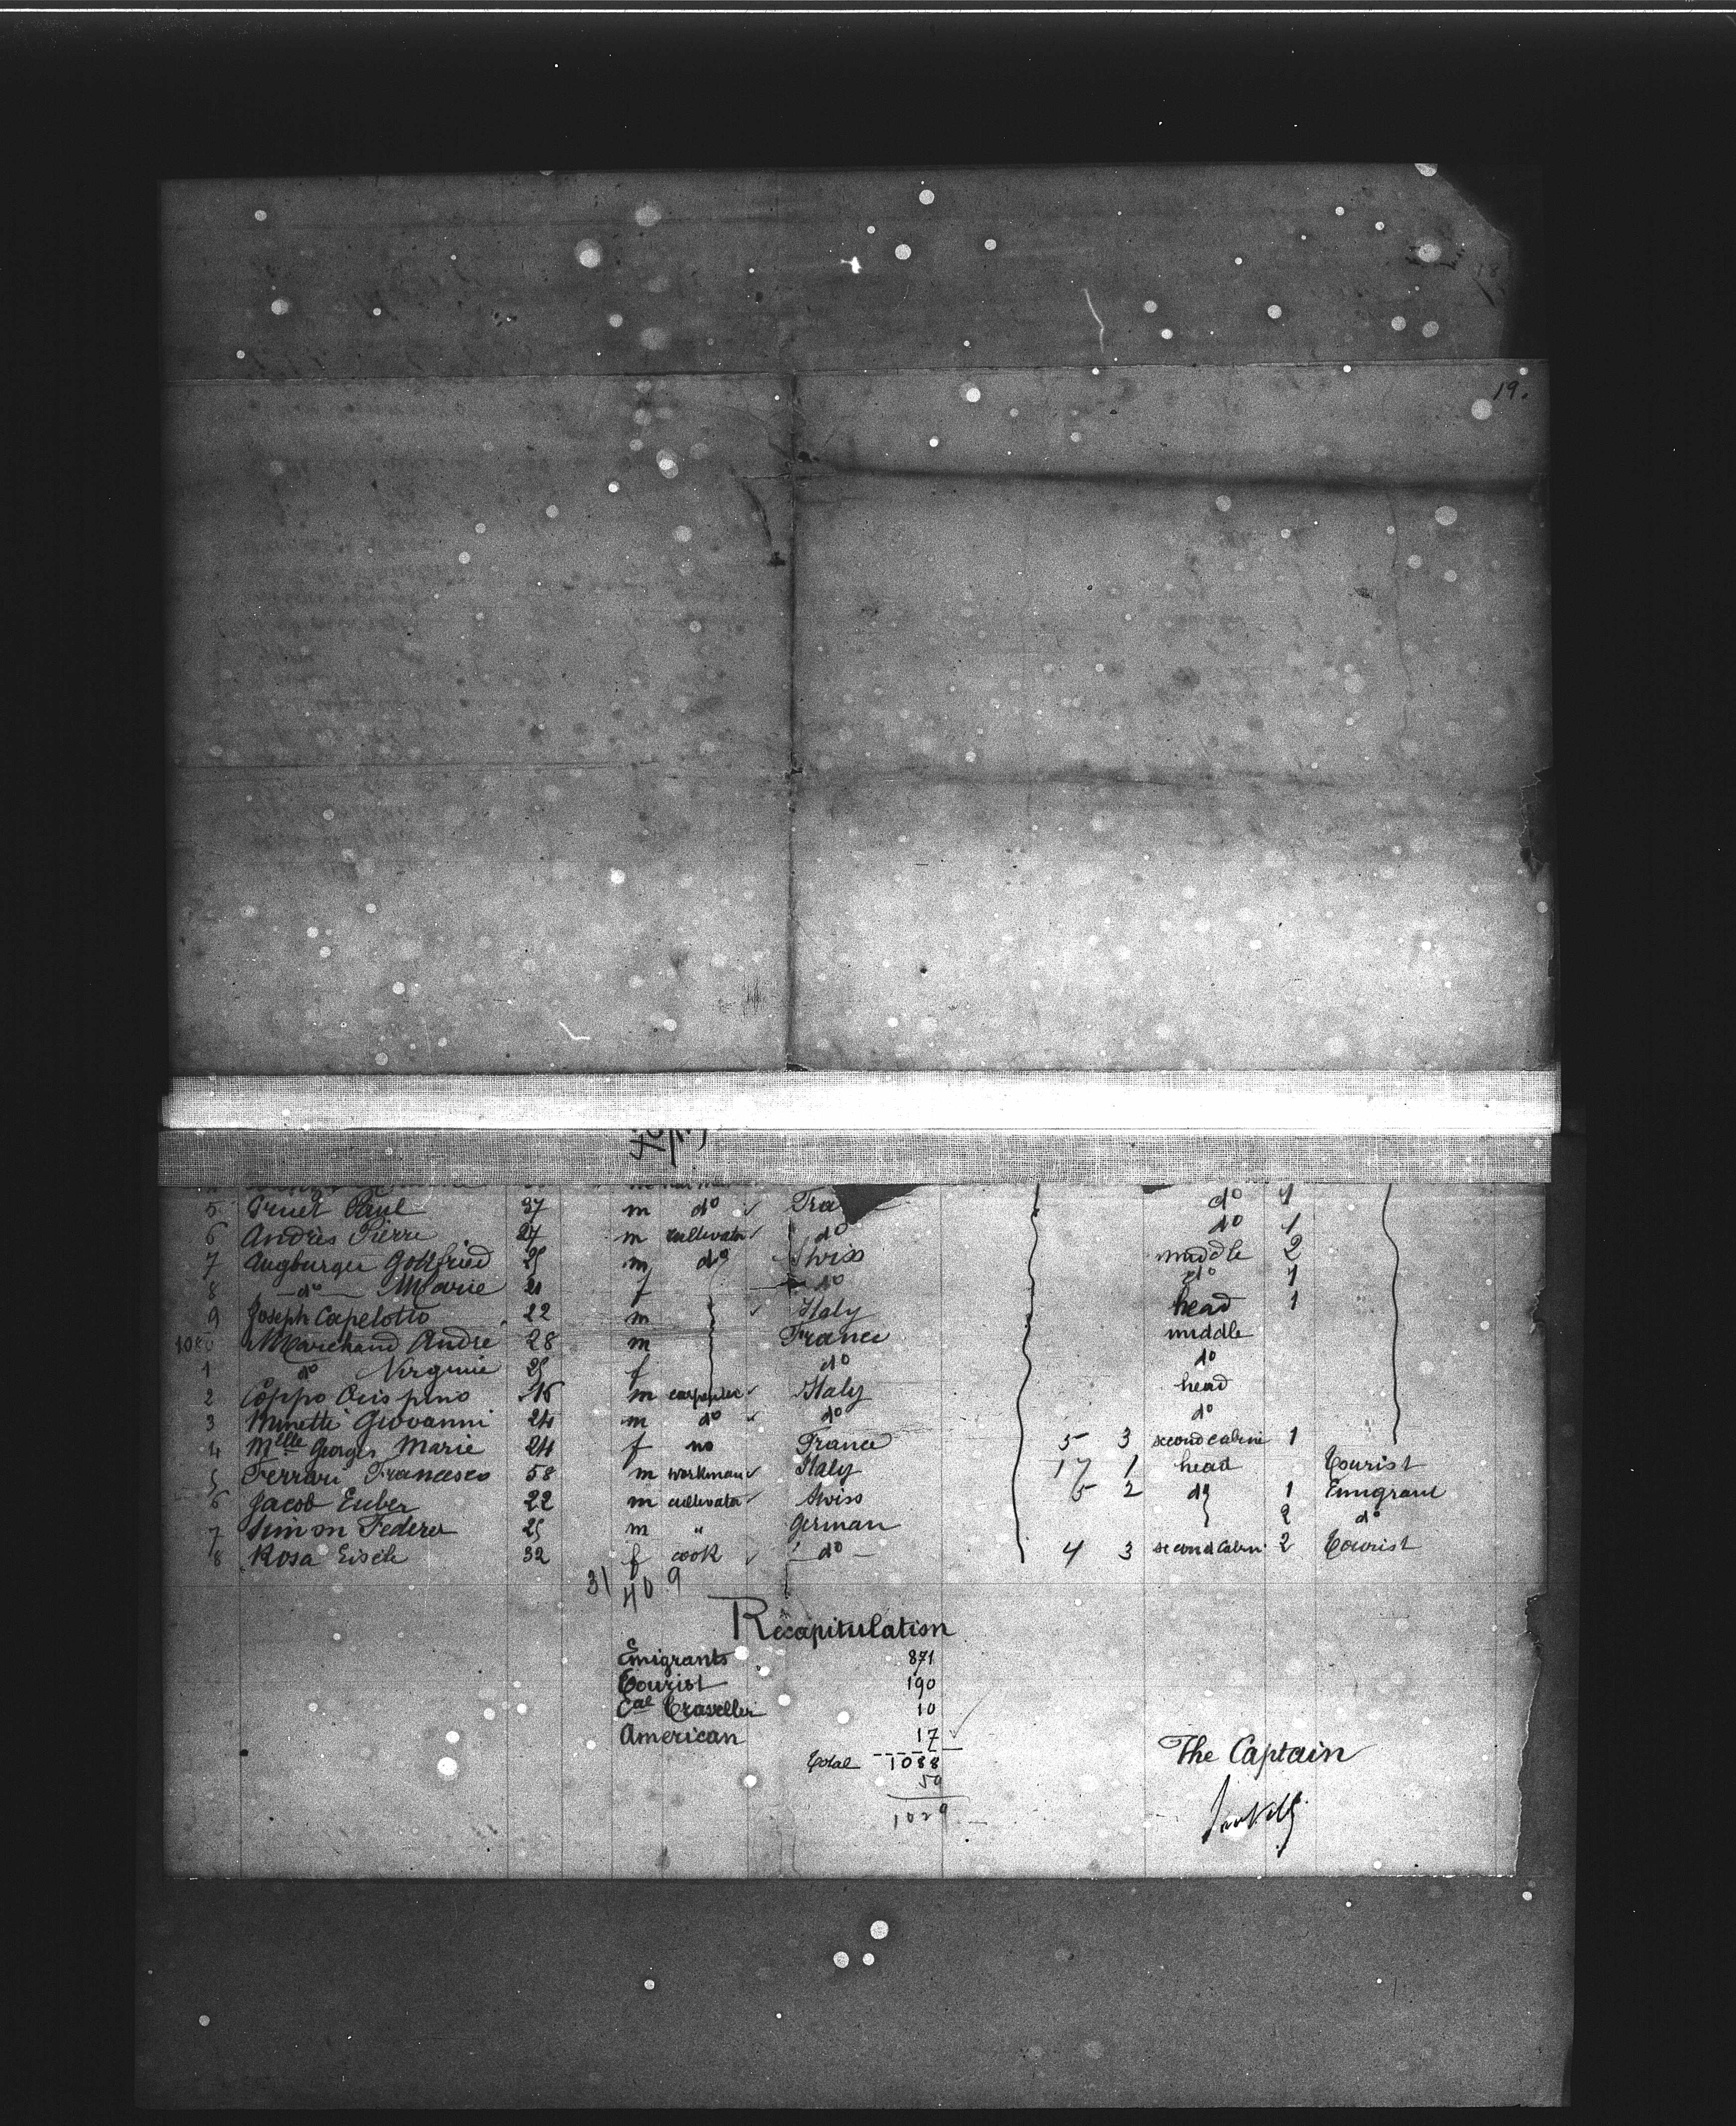 19.
5 Truet Paul 37 m do Fra do 1
6 Andrès Pierre 27 m cultivator do do 1
7 Augburger Gottfried 25 m do Swiss middle 2
8 do Marie 21 f do do 1
9 Joseph Capelotto 22 m Italy head 1
1080 Marchand André 28 m France middle
1 do Virginie 25 f do do
2 Coppo Crispino 16 m carpenter Italy head
3 Minetti Giovanni 24 m do do do
4 Mlle Georges Marie 24 f no France 5 3 second cabine 1
5 Ferrari Francesco 58 m workman Italy 17 1 head Tourist
6 Jacob Euber 22 m cultivator Swiss 5 2 do 1 Emigrant
7 Simon Federer 25 m " German 2 do
8 Rosa Eisele 32 f cook do 4 3 second cabin 2 Tourist
31 40 9
Recapitulation
Emigrants 871
Tourist 190
Cal Traveller 10
American 17
Total 1088
59
1029
The Captain